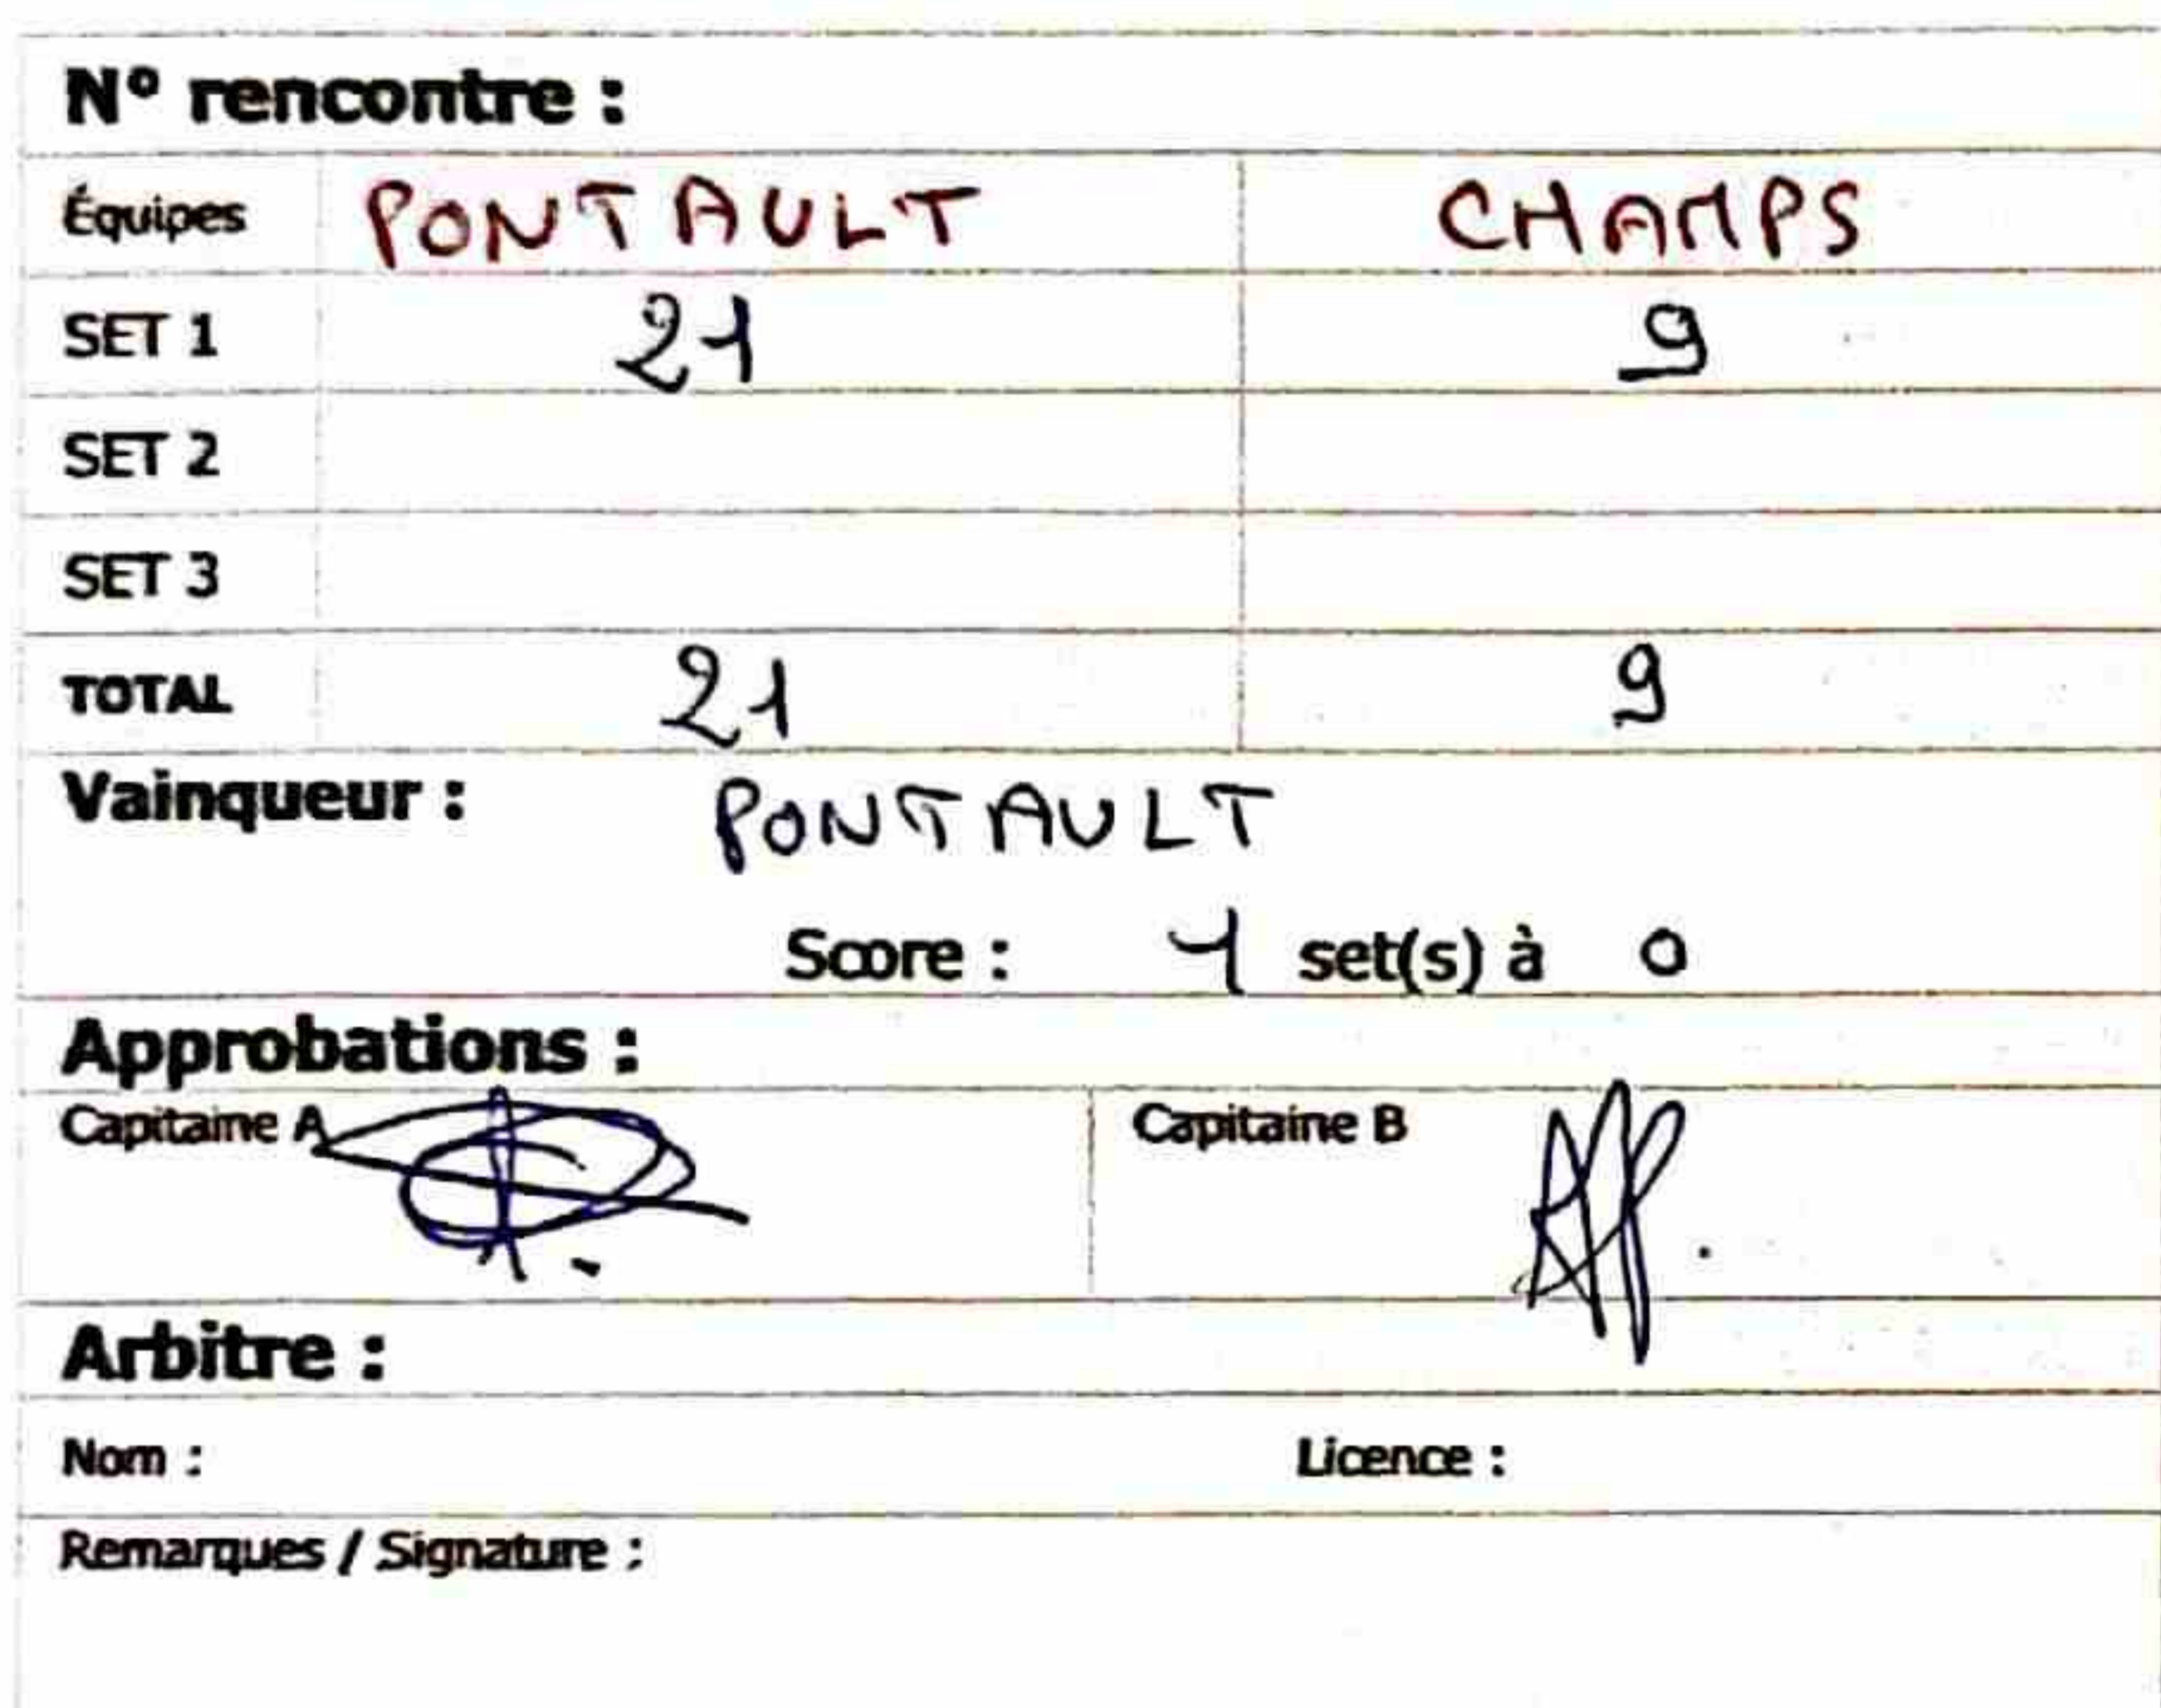 N° rencontre :
Équipes PONTAULT CHAMPS
SET 1 21 9
SET 2
SET 3
TOTAL 21 9
Vainqueur : PONTAULT
Score : 1 set(s) à 0
Approbations :
Capitaine A Capitaine B
Arbitre :
Nom : Licence :
Remarques / Signature :